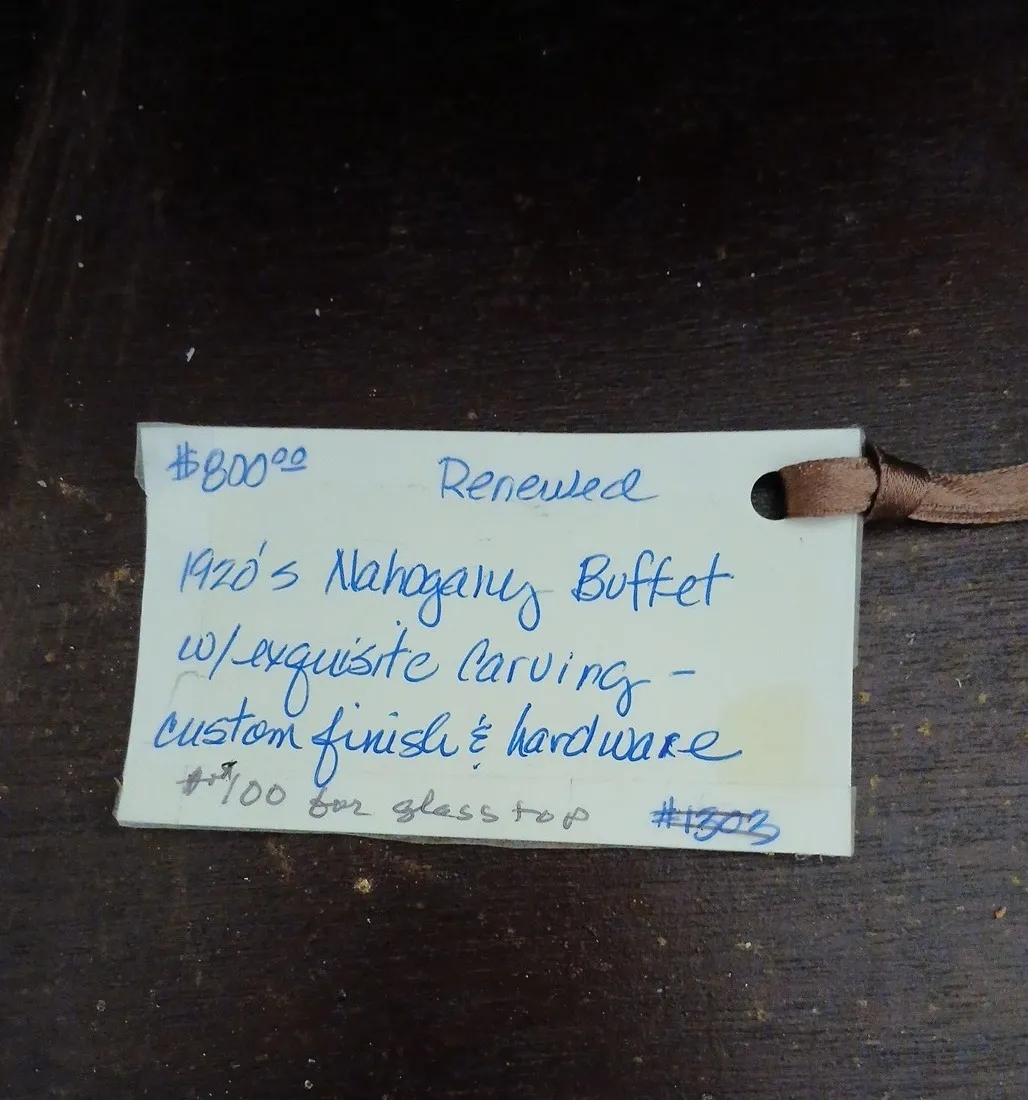 $800.00 Renewed
1920's Mahogany Buffet
w/exquisite Carving -
custom finish & hardware
$100 for glass top #1303